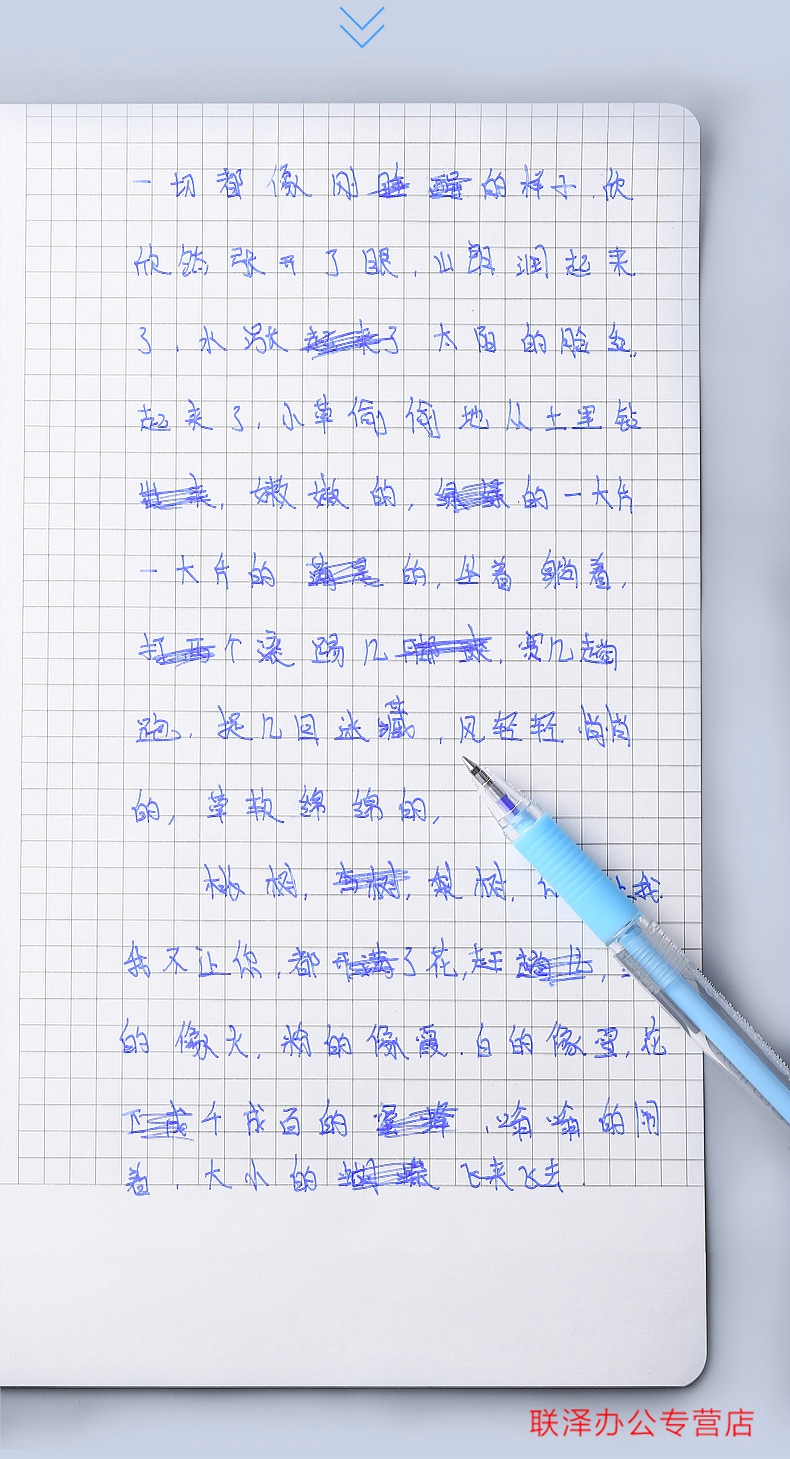 一切都像刚睡醒的样子,欣
欣然张开了眼,山朗润起来
了,水涨起来了,太阳的脸红
起来了,小草偷偷地从土里钻
出来,嫩嫩的,绿绿的一大片
一大片的满是的,坐着,躺着,
打两个滚,踢几脚球,赛几趟
跑,捉几回迷藏,风轻轻悄悄
的,草软绵绵的,
桃树,杏树,梨树,你 让我
我不让你,都开满了花,赶趟儿,
的像火,粉的像霞,白的像雪,花
下成千成百的蜜蜂,嗡嗡的闹
着,大小的蝴蝶飞来飞去.
联泽办公专营店